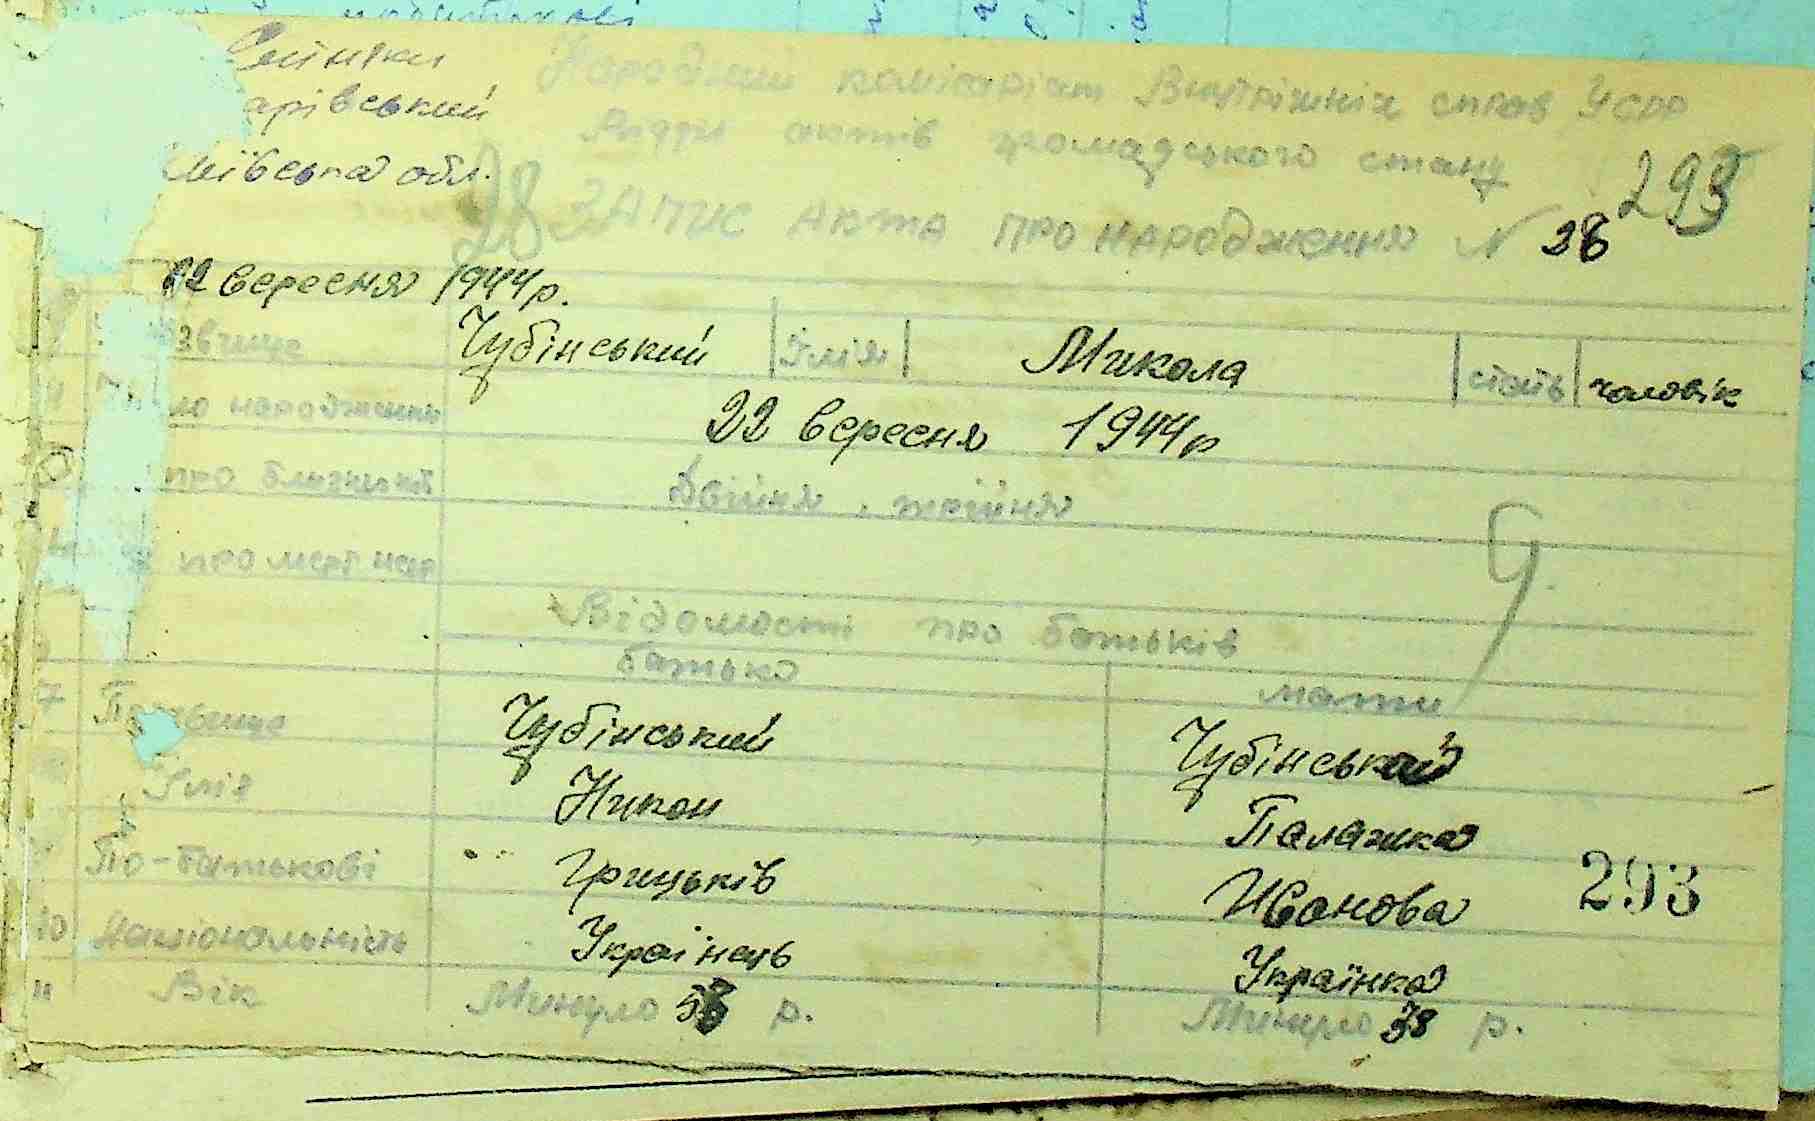 арівський
Київська обл.
Народний комісаріат Внутрішніх справ УСРР
Відділ актів громадського стану
293
28 ЗАПИС АКТА ПРО НАРОДЖЕННЯ N 28
22 вересня 1944р.
звище Чубінський Імія Микола стать чоловік
ло народження 22 вересня 1944р
про близнят Двійня, трійня
про мерт нар
Відомості про батьків
батько мати
7 Чубінський Чубінська
Імія Никон Палажка
По-батькові Грицьків Иванова 293
10 Національність Украінець Українка
11 Вік Минуло р. Минуло 38 р.